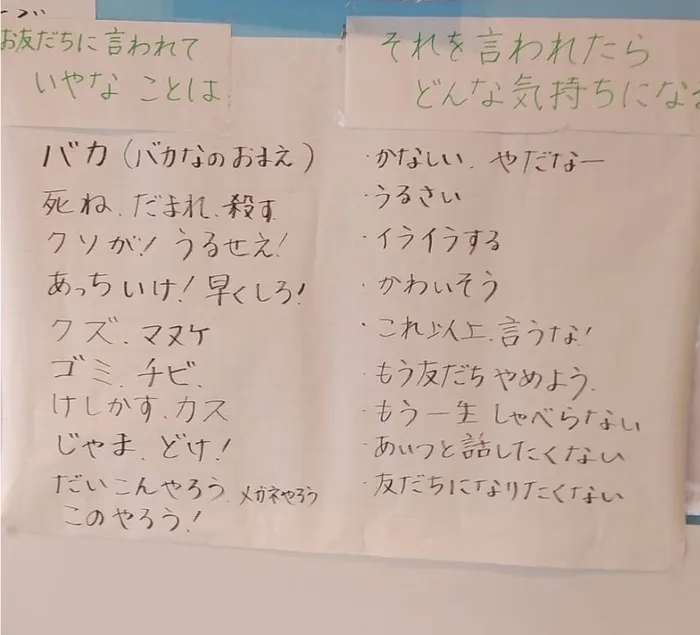 お友だちに言われて
いやな ことは
バカ（バカなのおまえ）
死ね、だまれ、殺す
クソが! うるせえ!
あっちいけ! 早くしろ!
クズ、マヌケ
ゴミ、チビ、
けしかす、カス
じゃま、どけ!
だいこんやろう、メガネやろう
このやろう!
それを言われたら
どんな気持ちになる
・かなしい、やだなー
・うるさい
・イライラする
・かわいそう
・これ以上、言うな!
・もう友だち やめよう、
・もう一生 しゃべらない
・あいつと話したくない
・友だちになりたくない